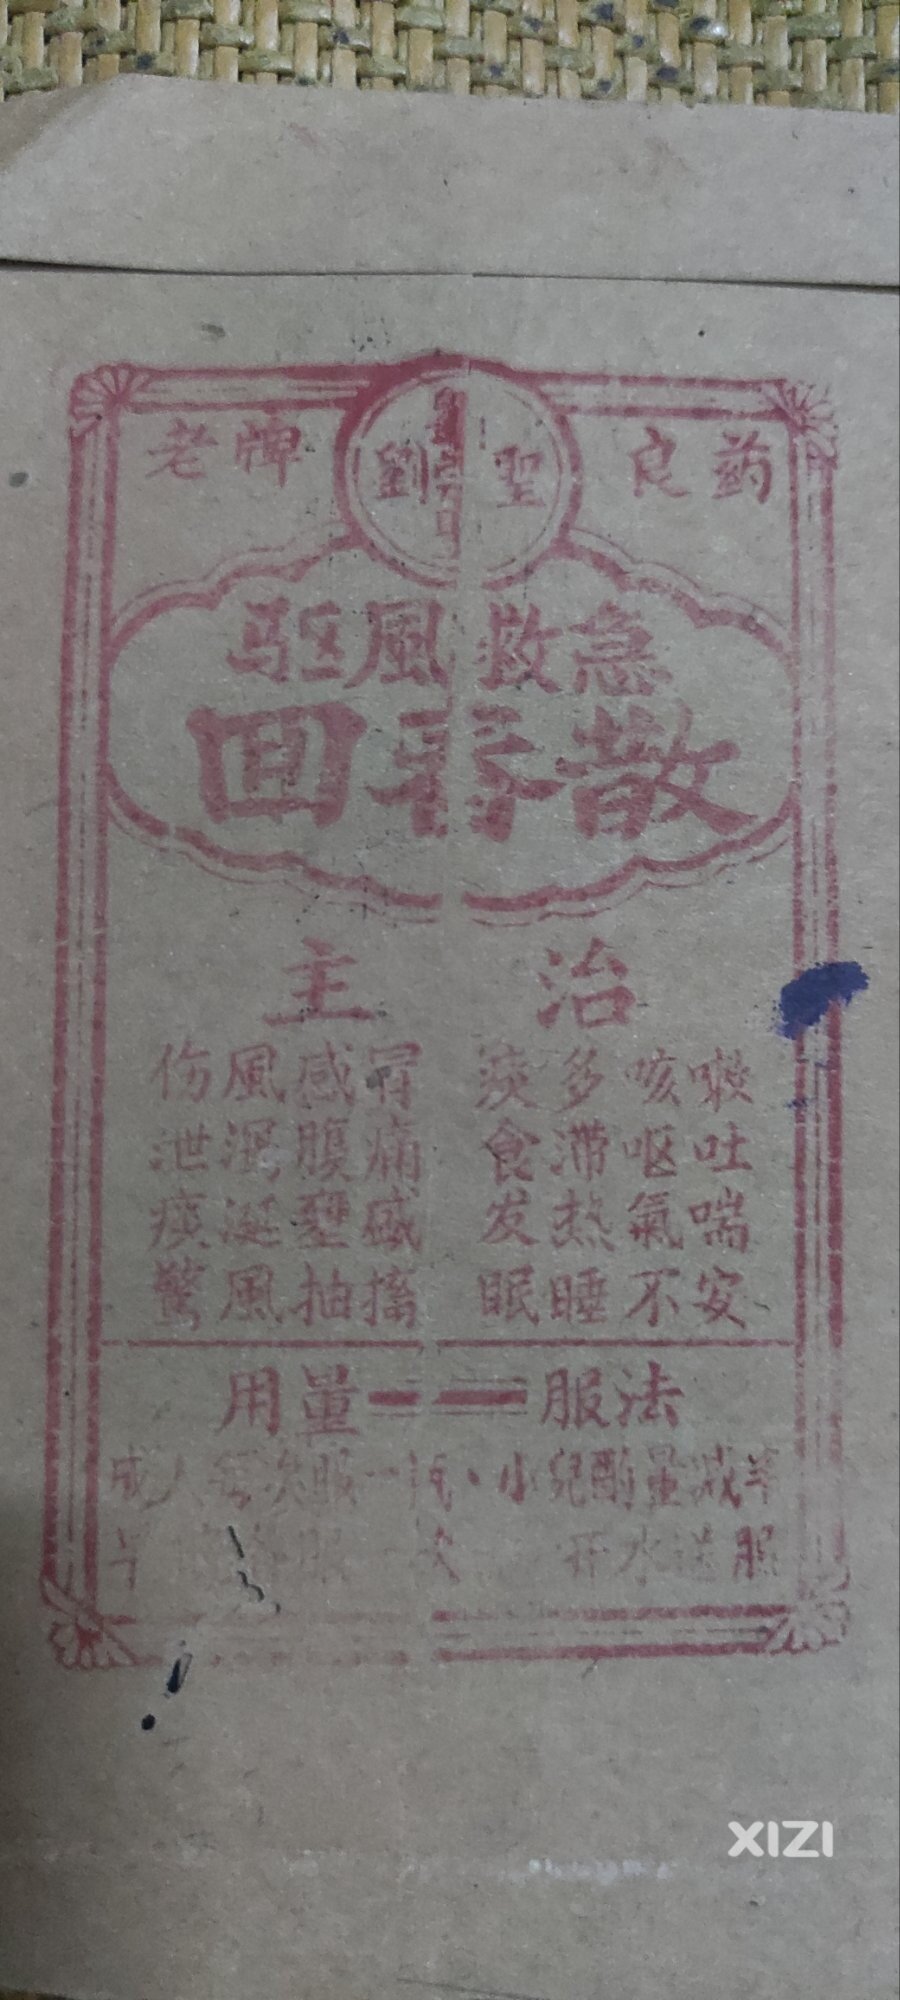 老牌 劉聖 良药
驱風救急
回春散
主 治
伤風感冒 痰多咳嗽
泄泻腹痛 食滞呕吐
痰涎壅盛 发热氣喘
驚風抽搐 眠睡不安
用量 服法
成人每次服一 小兒酌量減半
服 开水送服
XIZI